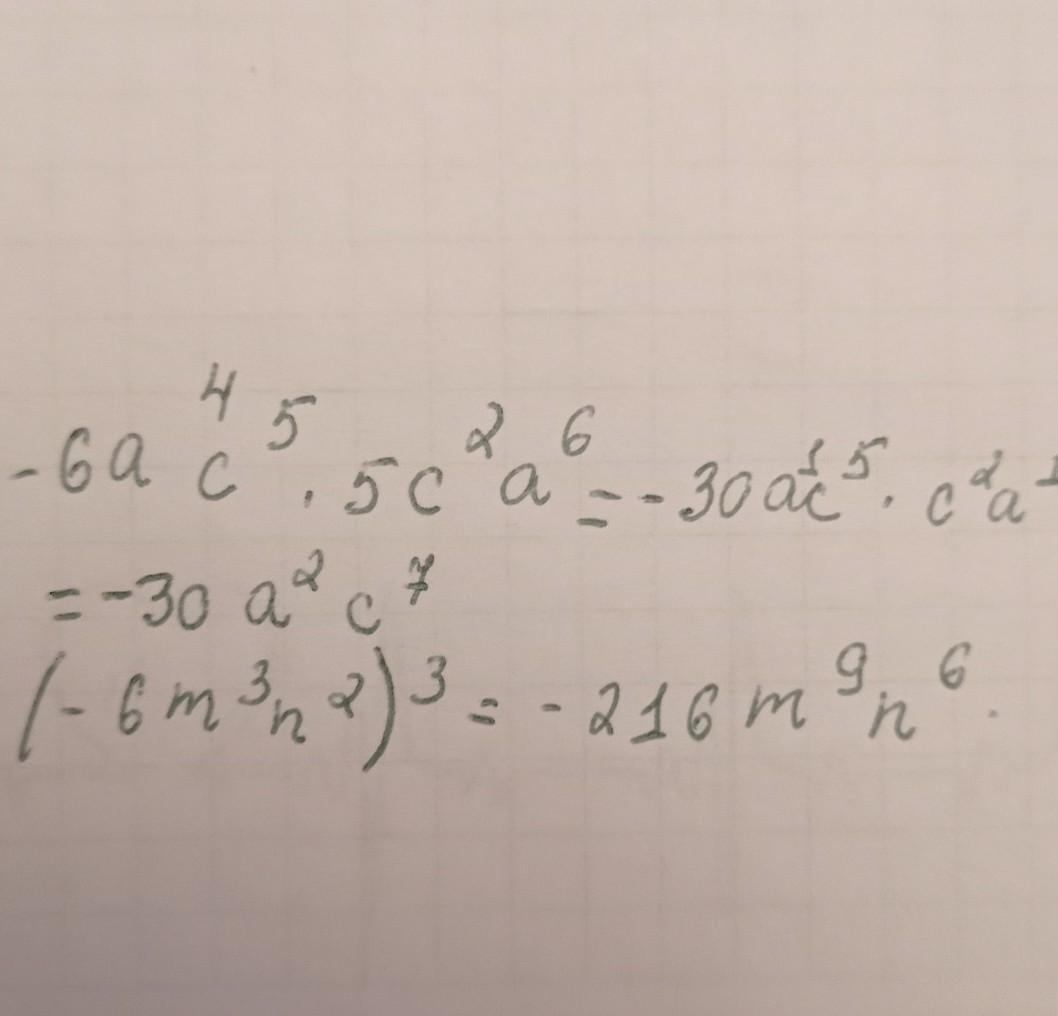 -6a⁴c⁵ · 5c²a⁶ = -30a¹c⁵ · c²a¹
= -30 a²c⁷
(-6m³n²)³ = -216m⁹n⁶.